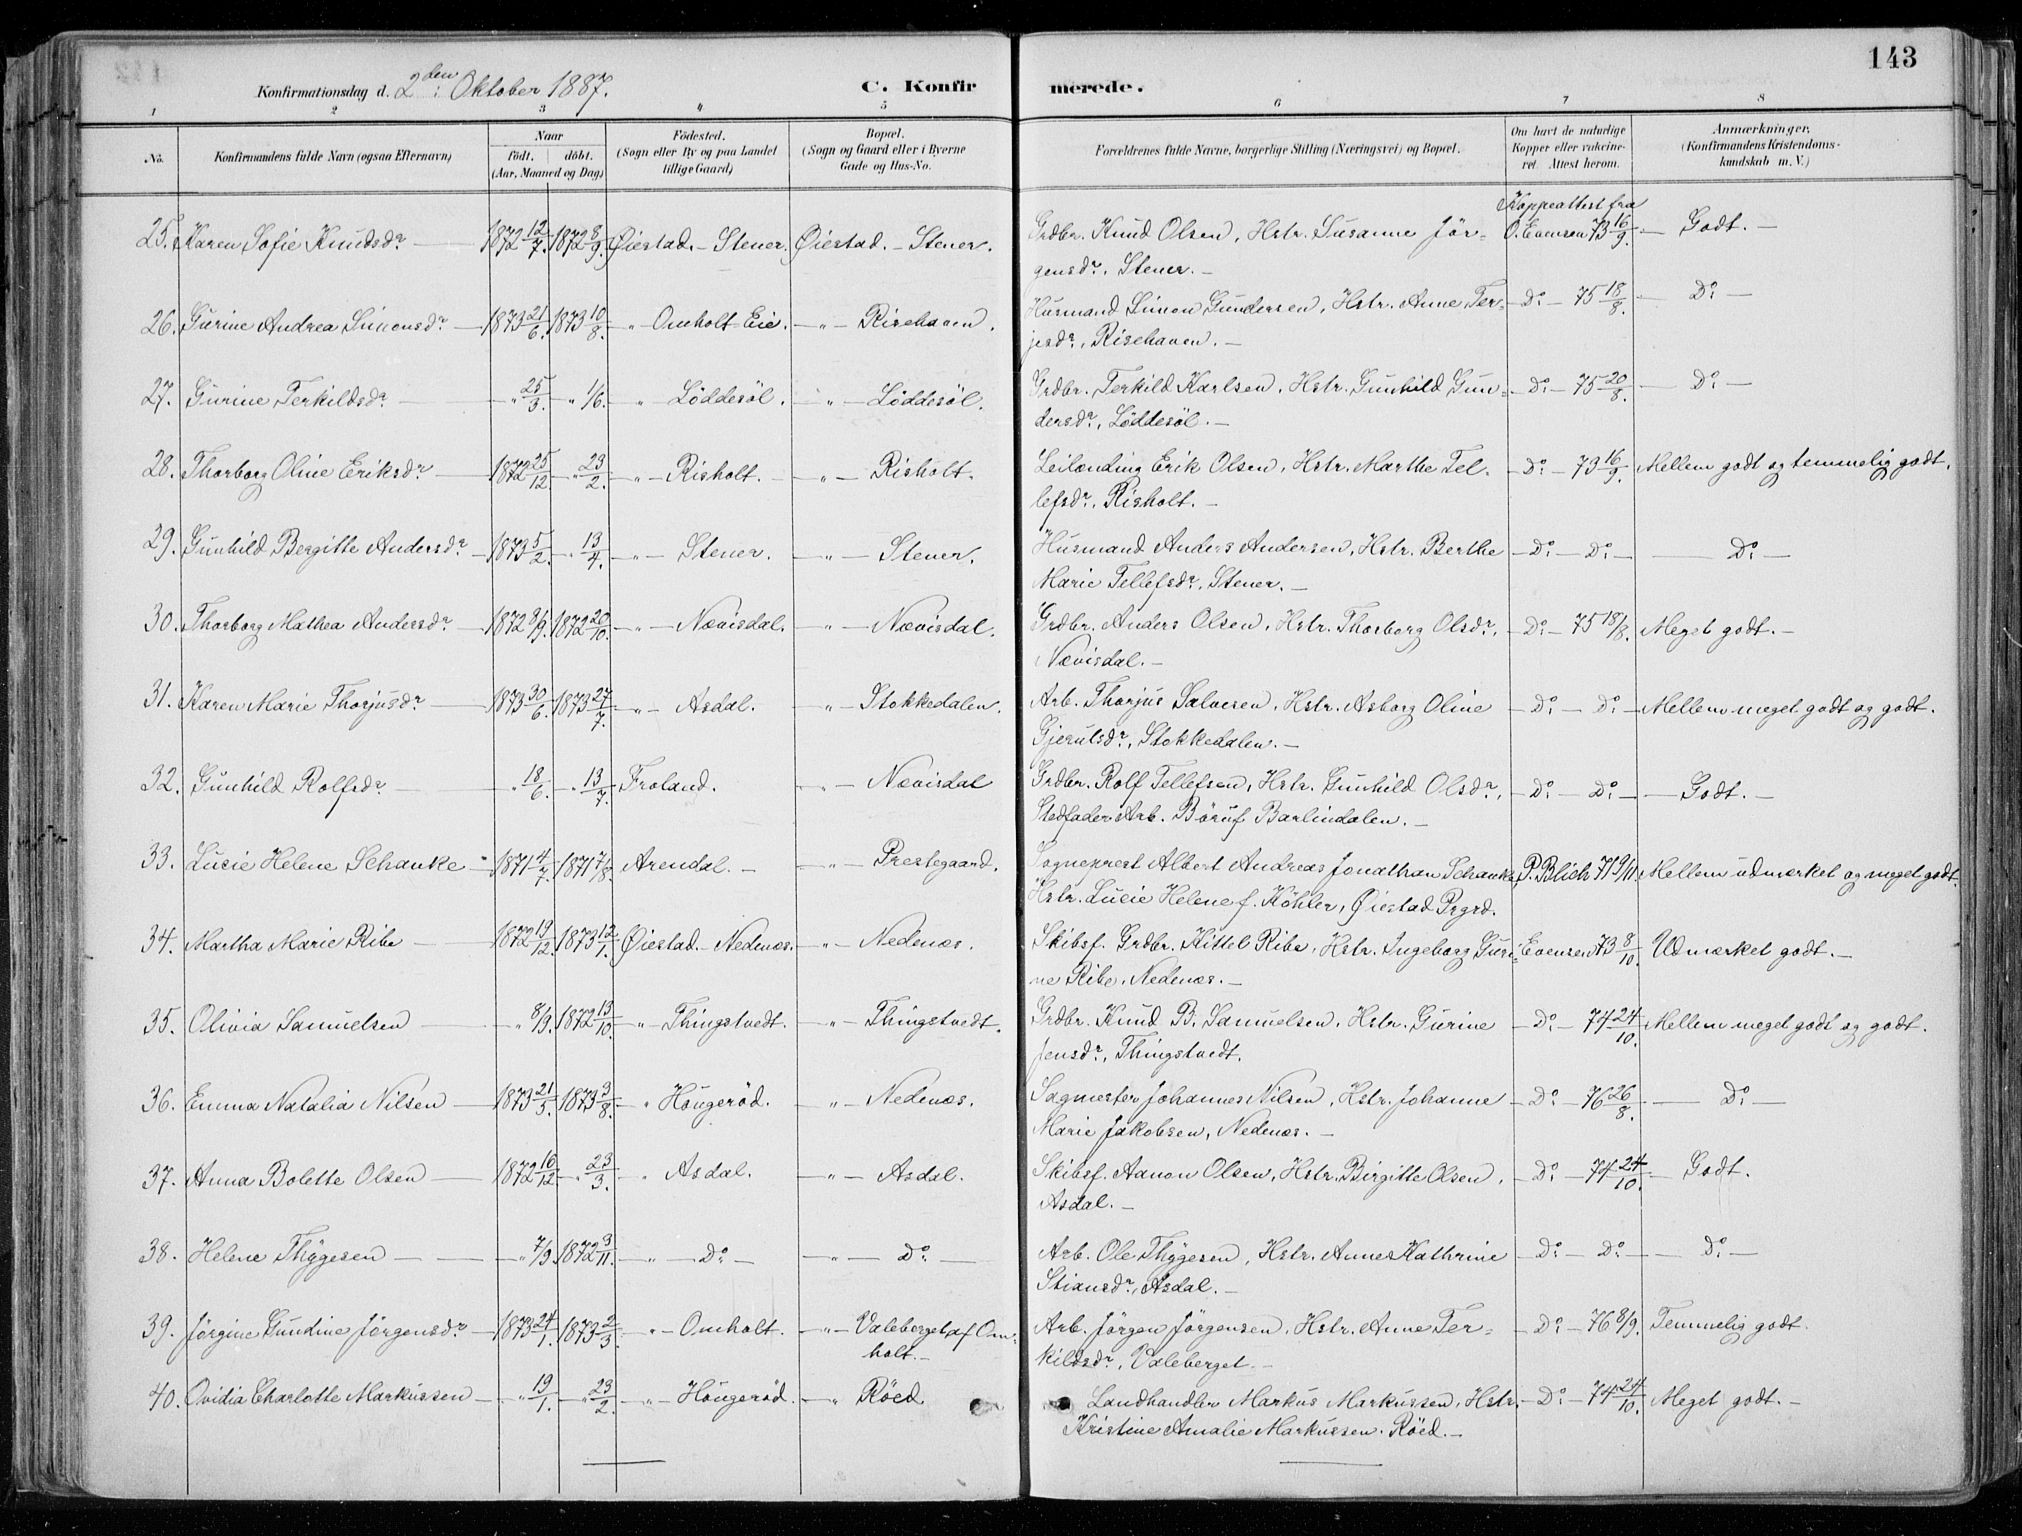 143
Konfirmationsdag d. 2den Oktober 1887. C. Konfirmerede.
1 2 3 " 5 6 7 8
No. Konfirmandens fulde Navn (ogsaa Efternavn) Naar födt. döbt. (Aar, Maaned og Dag) Födested. (Sogn eller By og paa Landet tillige Gaard) Bopæl. (Sogn og Gaard eller i Byerne Gade og Hus-No. Forældrenes fulde Navne, borgerlige Stilling (Næringsvei) og Bopæl. Om havt de naturlige Kopper eller vaccineret. Attest herom. Anmærkninger, (Konfirmandens Kristendomskundskab m. V.)
Koppeattest fra
25. Karen Sofie Knudsdr. 1872 12/7. 1872 8/9. Öiestad. - Stener. Öiestad. - Stener. Grdbr. Knud Olsen, Hstr. Susanne Jör- O. Evensen 73 16/9. Godt. -
gensdr. Stener. -
26. Gurine Andrea Simonsdr. 1873 21/6. 1873 10/8. " Omholt-Eie. - " - Risehaven. Husmand Simon Gundersen, Hstr. Anne Ter- - Do - 75 18/8. - Do -
jesdr., Risehaven. -
27. Gurine Terkildsdr. - " 25/3. " 1/6. " Löddesöl. " - Löddesöl. Grdbr. Terkild Karlsen, Hstr. Gunhild Gun- - Do - 75 20/8. - Do -
dersdr., Löddesöl. -
28. Thorborg Oline Eriksdr. 1872 25/12. - " 23/2. - " - Risholt. - - " - Risholt. Leilænding Erik Olsen, Hstr. Marthe Tel- - Do - 73 16/9. Mellem godt og temmelig godt.
lefsdr., Risholt. -
29. Gunhild Bergitte Andersdr. 1873 5/2. " 13/4. - " - Stener. - " - Stener. Husmand Anders Andersen, Hstr. Berthe - Do - Do - - Do -
Marie Tellefsdr., Stener. -
30. Thorborg Mathea Andersdr. 1872 8/9. 1872 20/10. - " - Nævisdal. - " - Nævisdal. Grdbr. Anders Olsen, Hstr. Thorborg Olsdr., - Do - 75 18/8. Meget godt. -
Nævisdal. -
31. Karen Marie Thorjusdr. 1873 30/6. 1873 27/7. - " - Asdal. - " - Stokkedalen. Arb. Thorjus Salvesen, Hstr. Asborg Oline - Do - Do - Mellem meget godt og godt.
Gjerulsdr., Stokkedalen. -
32. Gunhild Rolfsdr. - " 18/6. - " 13/7. Froland. - " - Nævisdal Grdbr. Rolf Tellefsen, Hstr. Gunhild Olsdr., - Do - Do - - Godt. -
Stedfader Arb. Barlindalen. -
33. Lucie Helene Schanke - 1871 4/7. 1871 7/8. Arendal. - - " - Prestegaard. Sogneprest Albert Andreas Jonathan Schanke, P. Blich 71 9/11. Mellem udmærket og meget godt.
Hstr. Lucie Helene f. Köhler, Öiestad Prgrd.
34. Martha Marie Ribe - 1872 19/12. 1873 12/1. Öiestad. - Nedenæs. - " - Nedenæs. Skibsf. Grdbr. Kittel Ribe, Hstr. Ingeborg Guri- Evensen 73 8/10. Udmærket godt. -
ne Ribe, Nedenæs. -
35. Olivia Samuelsen - " 8/9. 1872 13/10. - " - Thingstvedt. - " - Thingstvedt. Grdbr. Knud B. Samuelsen, Hstr. Gurine - Do - 74 24/10. Mellem meget godt og godt.
Jensdr., Thingstvedt.
36. Emma Natalia Nilsen - 1873 21/5. 1873 3/8. - " Hougeröd. - " - Nedenæs. Sagmester Johannes Nilsen, Hstr. Johanne - Do - 76 26/8. - Do -
Marie Jakobsen, Nedenæs. -
37. Anna Bolette Olsen - 1872 16/12. - " 23/3. " Asdal. - " - Asdal. Skibsf. Aanon Olsen, Hstr. Birgitte Olsen, - Do - 74 24/10. - Godt.
Asdal. -
38. Helene Thygesen - - " 7/9. 1872 3/11. - " - Do - - " - Do. - Arb. Ole Thygesen, Hstr. Anne Kathrine - Do - Do - - Do -
Stiansdr., Asdal. -
39. Jörgine Gundine Jörgensdr. - 1873 24/1. 1873 2/3. - " - Omholt. - " - Valeberget af Om- Arb. Jörgen Jörgensen, Hstr. Anne Ter- - Do - 76 8/9. Temmelig godt.
holt. - kildsdr., Valeberget. -
40. Ovidia Charlotte Markussen - " 19/1. - " 23/2. - " - Hougeröd. - " - Röed Landhandler Markus Markussen, Hstr. - Do - 74 24/10. Meget godt. -
Kristine Amalie Markussen. Röed. -